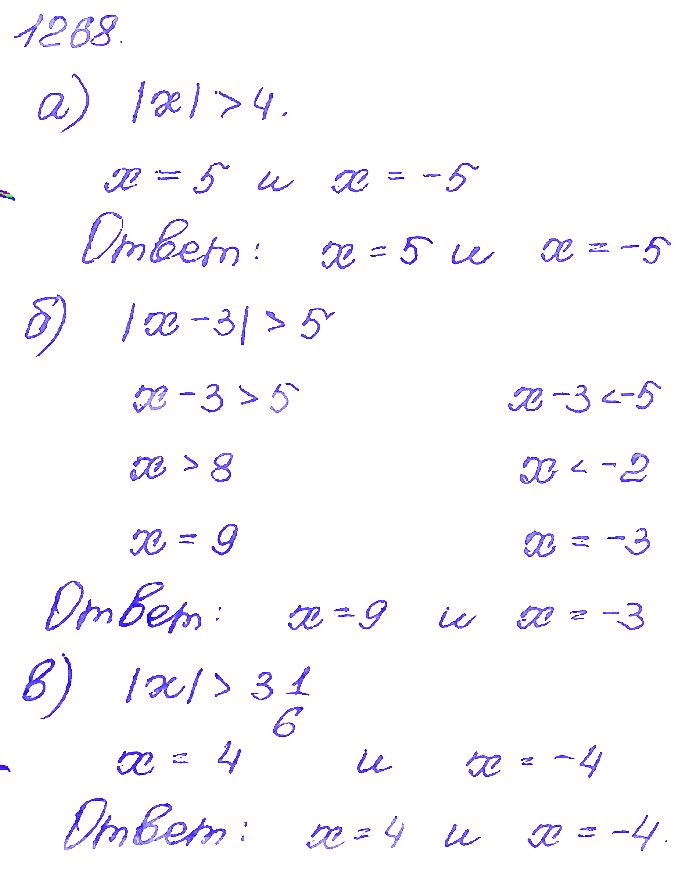 1268.
а) |x| > 4.
x = 5 и x = -5
Ответ: x = 5 и x = -5
б) |x - 3| > 5
x - 3 > 5 x - 3 < -5
x > 8 x < -2
x = 9 x = -3
Ответ: x = 9 и x = -3
в) |x| > 3 1/6
x = 4 и x = -4
Ответ: x = 4 и x = -4.